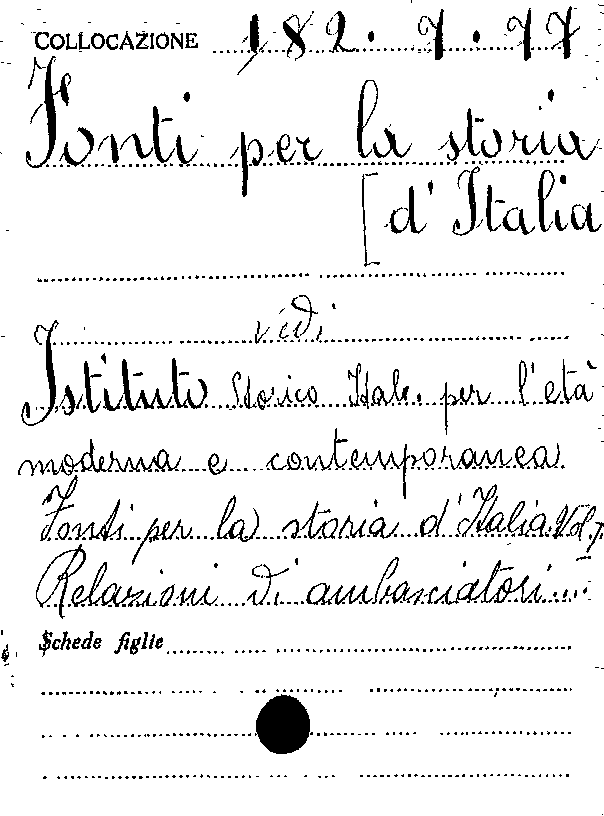 COLLOCAZIONE 182.7.77
Fonti per la storia
[d'Italia
vidi
Istituto Storico Ital. per l'età
moderna e contemporanea
Fonti per la storia d'Italia. Vol. 7.
Relazioni di ambasciatori...
Schede figlie